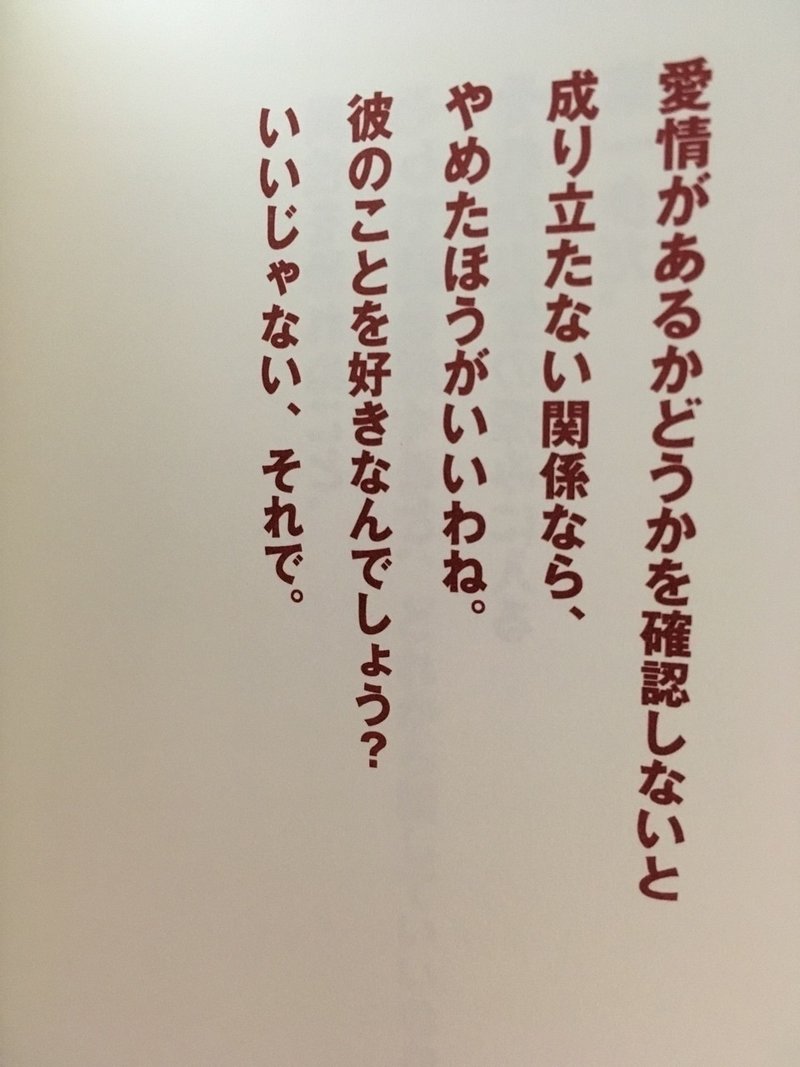 愛情があるかどうかを確認しないと
成り立たない関係なら、
やめたほうがいいわね。
彼のことを好きなんでしょう?
いいじゃない、それで。